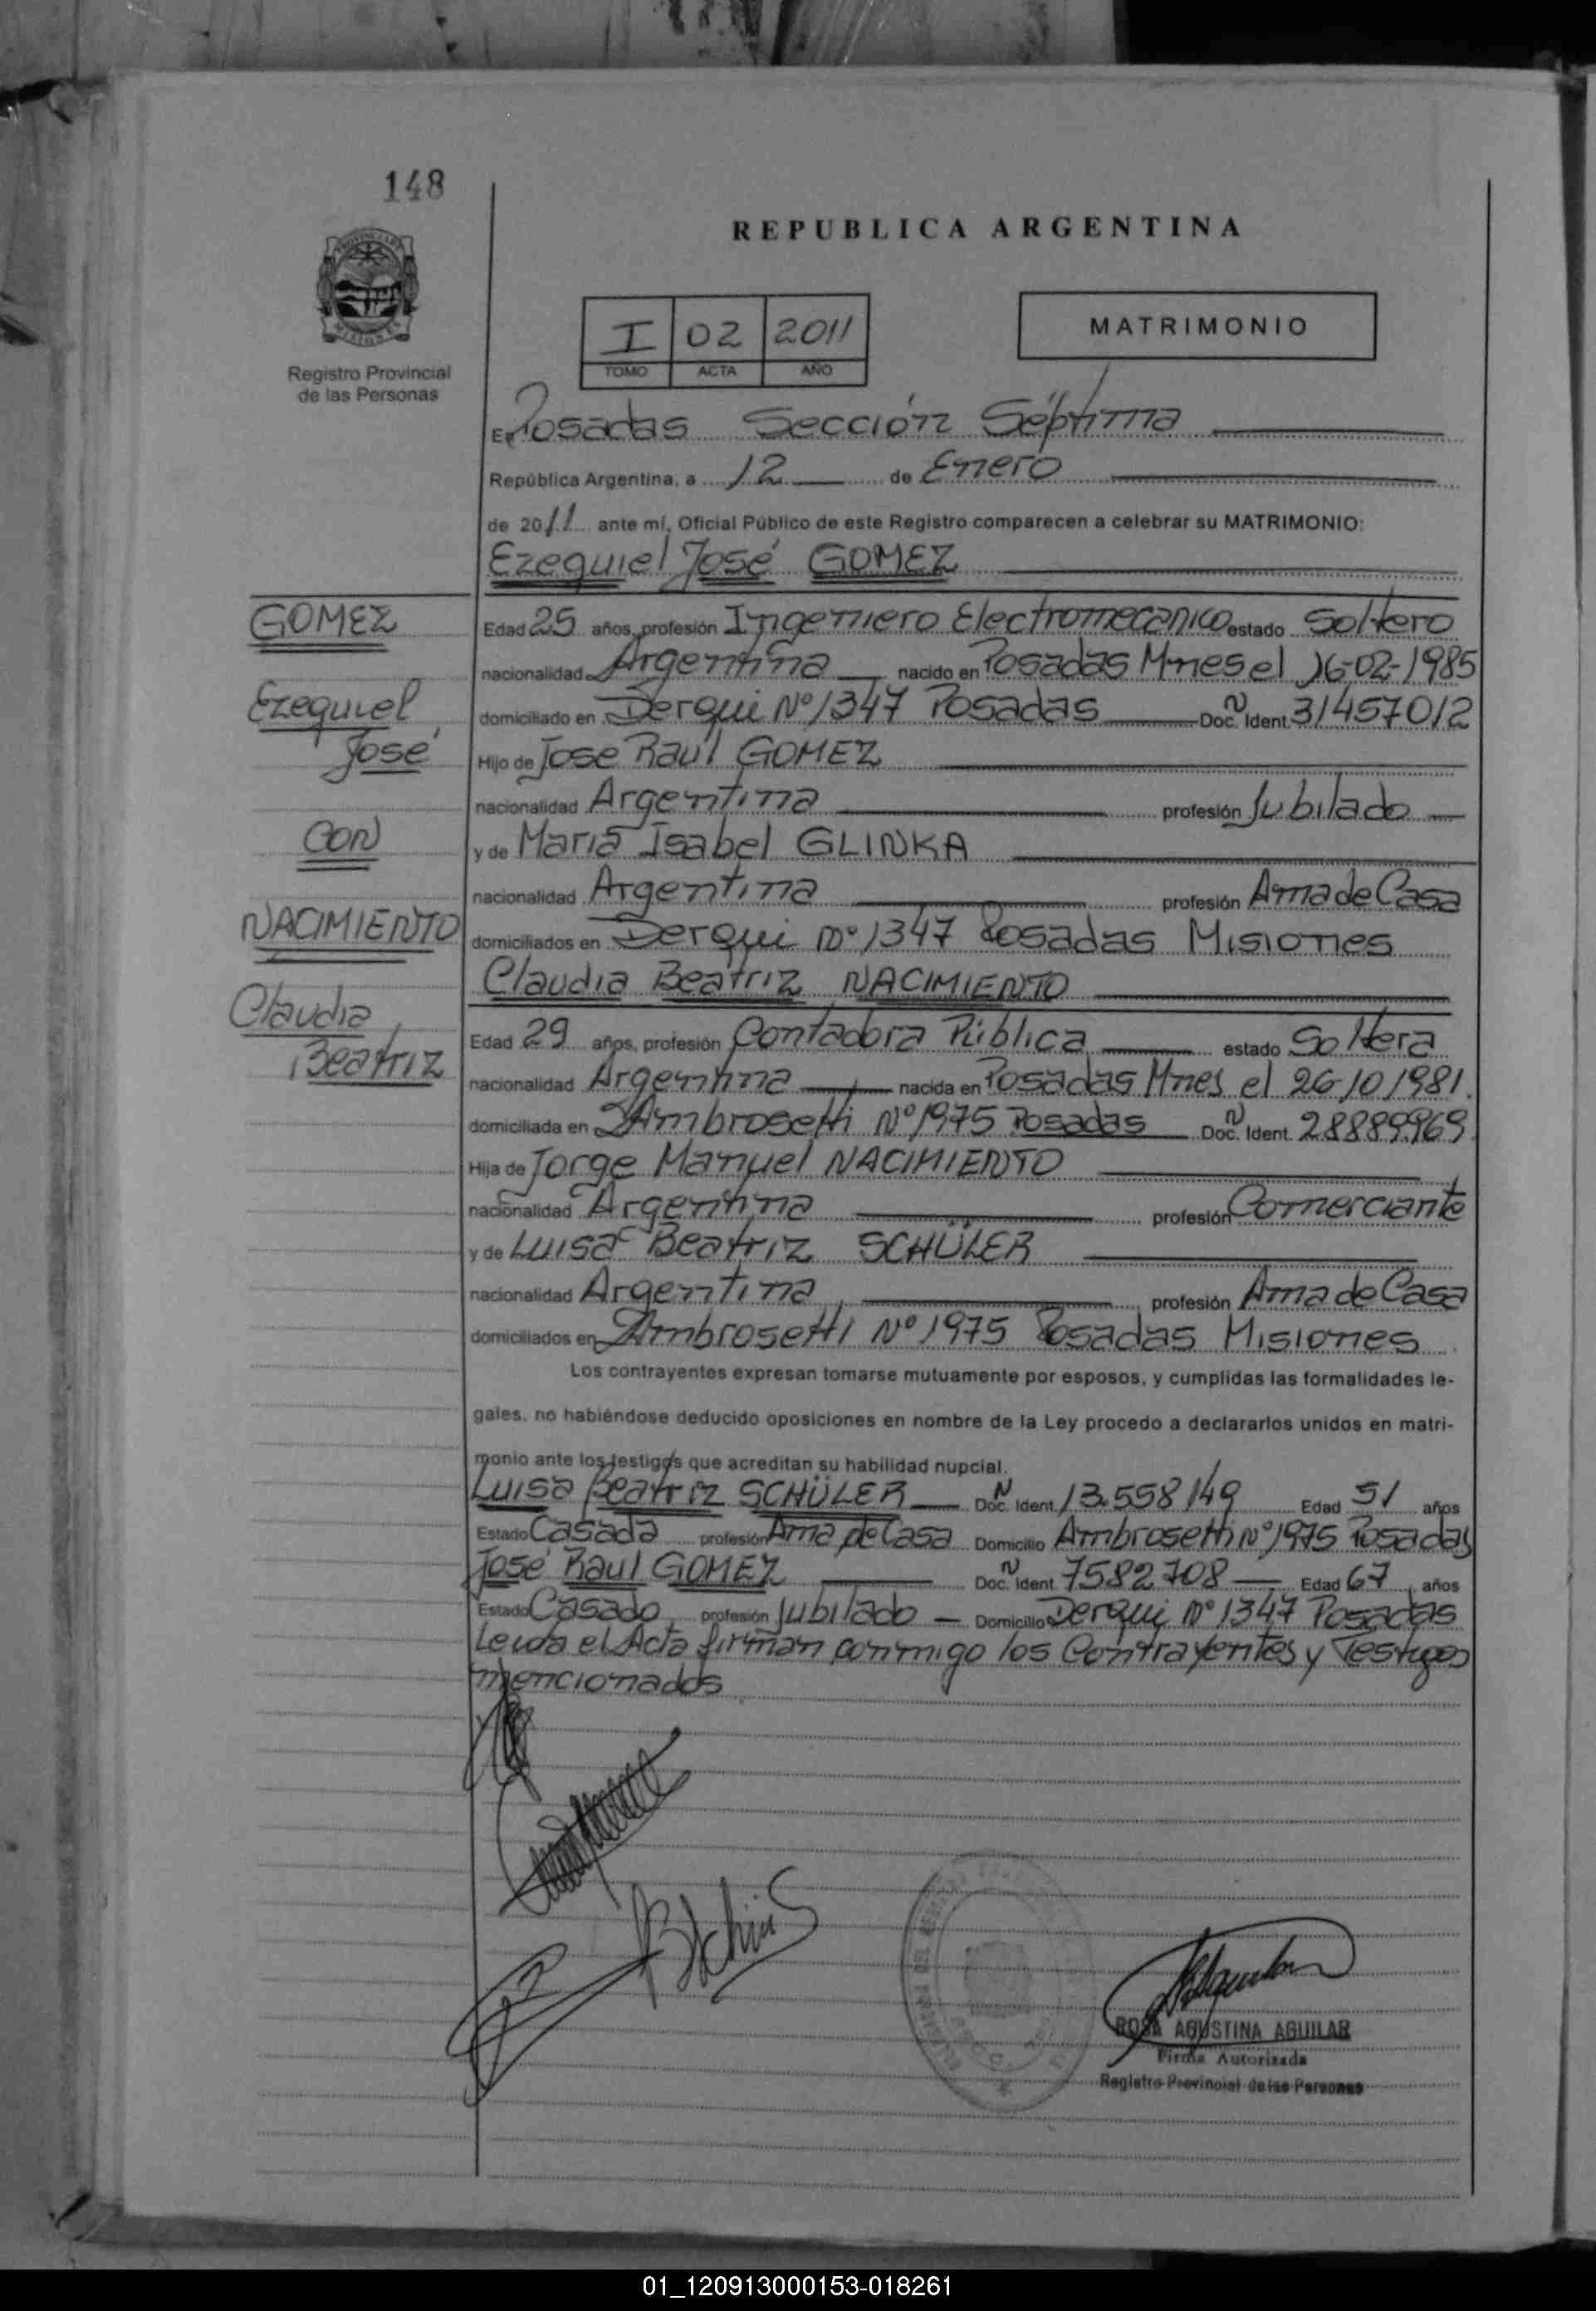 148
REPUBLICA ARGENTINA
PROVINCIA DE
MISIONES
Registro Provincial
de las Personas
I 02 2011
TOMO ACTA AÑO
MATRIMONIO
En Posadas Sección Séptima
República Argentina, a 12 de Enero
de 2011 ante mí, Oficial Público de este Registro comparecen a celebrar su MATRIMONIO:
Ezequiel José GOMEZ
GOMEZ
Ezequiel
José
CON
NACIMIENTO
Claudia
Beatriz
Edad 25 años, profesión Ingeniero Electromecanico estado Soltero
nacionalidad Argentina nacido en Posadas Mnes el 16-02-1985
domiciliado en Derqui Nº 1347 Posadas Doc. N Ident. 31457012
Hijo de Jose Raúl GOMEZ
nacionalidad Argentina profesión Jubilado
y de Maria Isabel GLINKA
nacionalidad Argentina profesión Ama de Casa
domiciliados en Derqui Nº 1347 Posadas Misiones
Claudia Beatriz NACIMIENTO
Edad 29 años, profesión Contadora Pública estado Soltera
nacionalidad Argentina nacida en Posadas Mnes el 26-10-1981
domiciliada en Ambrosetti Nº 1975 Posadas Doc. N Ident. 28889969
Hija de Jorge Manuel NACIMIENTO
nacionalidad Argentina profesión Comerciante
y de Luisa Beatriz SCHÜLER
nacionalidad Argentina profesión Ama de Casa
domiciliados en Ambrosetti Nº 1975 Posadas Misiones
Los contrayentes expresan tomarse mutuamente por esposos, y cumplidas las formalidades le-
gales, no habiéndose deducido oposiciones en nombre de la Ley procedo a declararlos unidos en matri-
monio ante los testigos que acreditan su habilidad nupcial.
Luisa Beatriz SCHÜLER Doc. N Ident. 13.558149 Edad 51 años
Estado Casada profesión Ama de Casa Domicilio Ambrosetti Nº 1975 Posadas
José Raul GOMEZ Doc. N Ident. 7582708 Edad 67 años
Estado Casado profesión Jubilado Domicilio Derqui Nº 1347 Posadas
Leida el Acta firman conmigo los Contrayentes y Testigos
mencionados
ROSA AGUSTINA AGUILAR
Firma Autorizada
Registro Provincial de las Personas
01_120913000153-018261